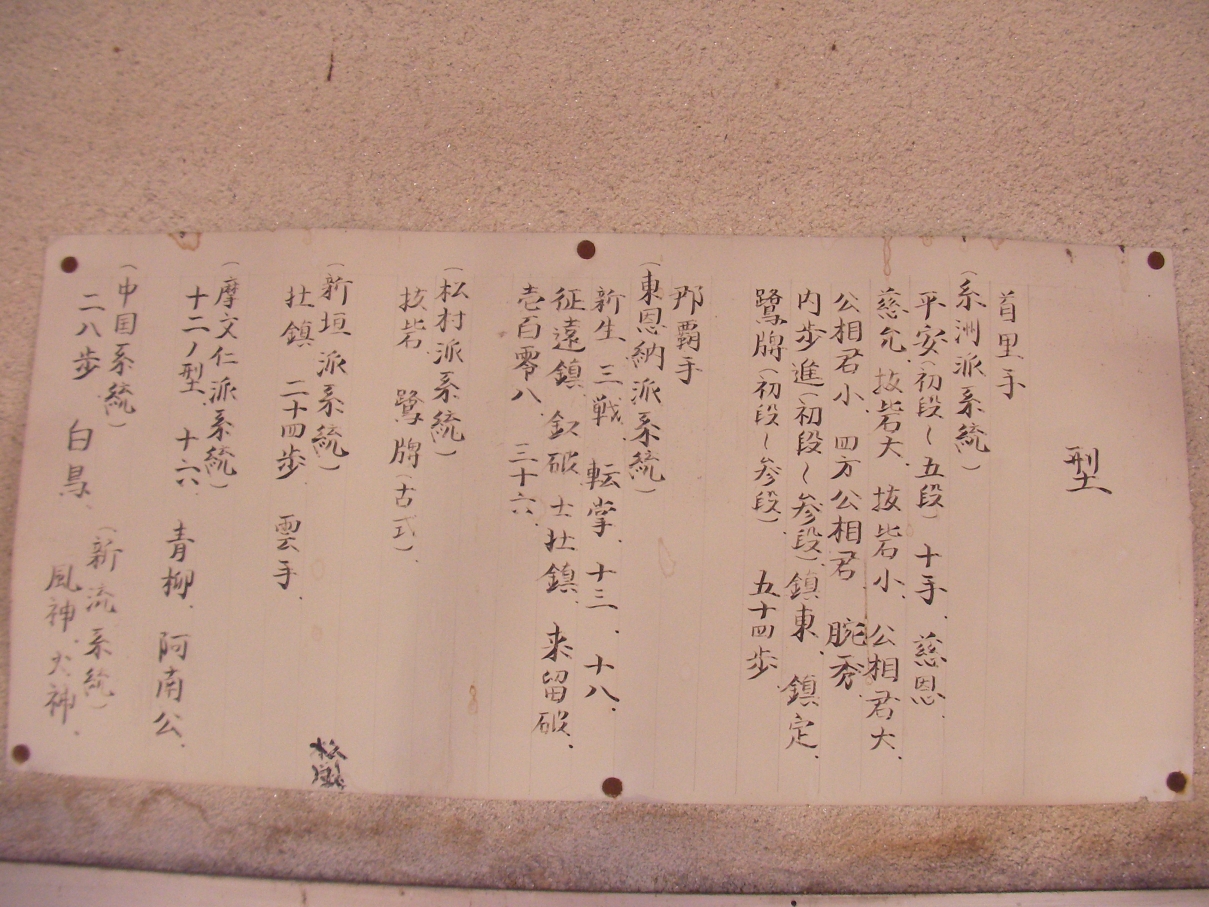 型
首里手
(糸洲派系統)
平安(初段～五段) 十手、慈恩
慈允、抜砦大、抜砦小、公相君大、
公相君小、四方公相君、腕秀、
内歩進(初段～参段)鎮東、鎮定、
鷺牌(初段～参段)、五十四歩
那覇手
(東恩納派系統)
新生、三戦、転掌、十三、十八、
征遠鎮、釵破、士壮鎮、来留破、
壱百零八、三十六、
(松村派系統)
抜砦、鷺牌(古式)、
(新垣派系統)
壮鎮、二十四歩、雲手、
松風
(摩文仁派系統)
十二ノ型、十六、青柳、阿南公、
(中国系統)
二八歩、白鳥、
(新流系統)
風神、火神、